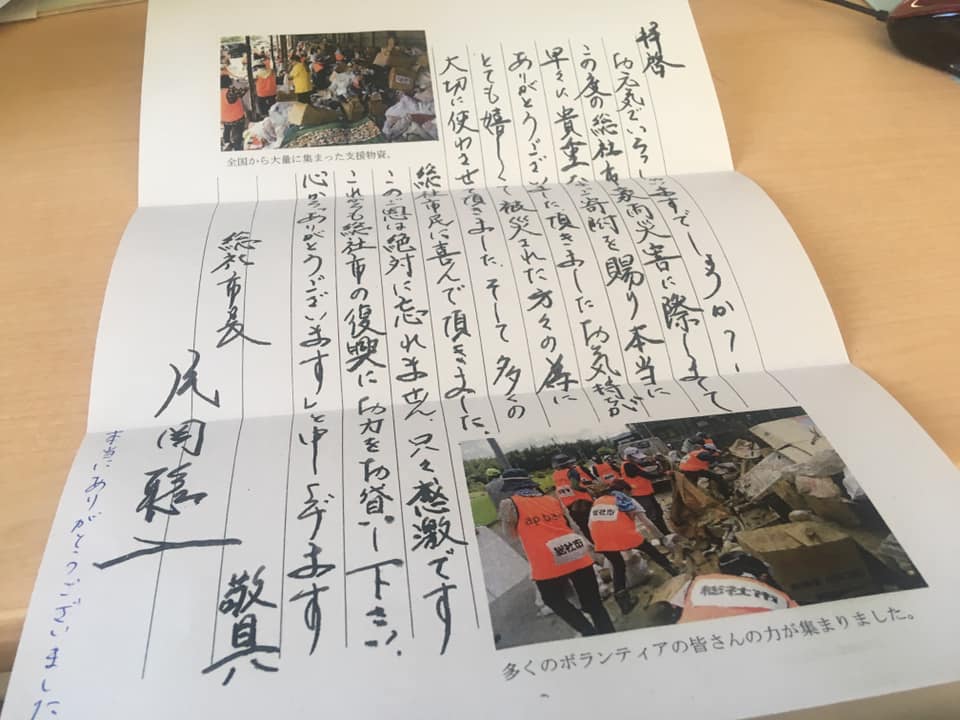 拝啓
お元気でいらっしゃいますでしょうか?
この度の総社市豪雨災害に際しまして
早々に貴重なご寄附を賜り本当に
ありがとうございました 頂きましたお気持が
とても嬉しくて被災された方々の為に
大切に使わせて頂きました。そして多くの
総社市民に喜んで頂きました。
このご恩は絶対に忘れません。只々感激です
これからも総社市の復興にお力をお貸し下さい。
心からありがとうございます」と申し上げます
総社市長
片岡聡一
敬具
本当にありがとうございました
全国から大量に集まった支援物資。
総社市
総社市
総社市
多くのボランティアの皆さんの力が集まりました。